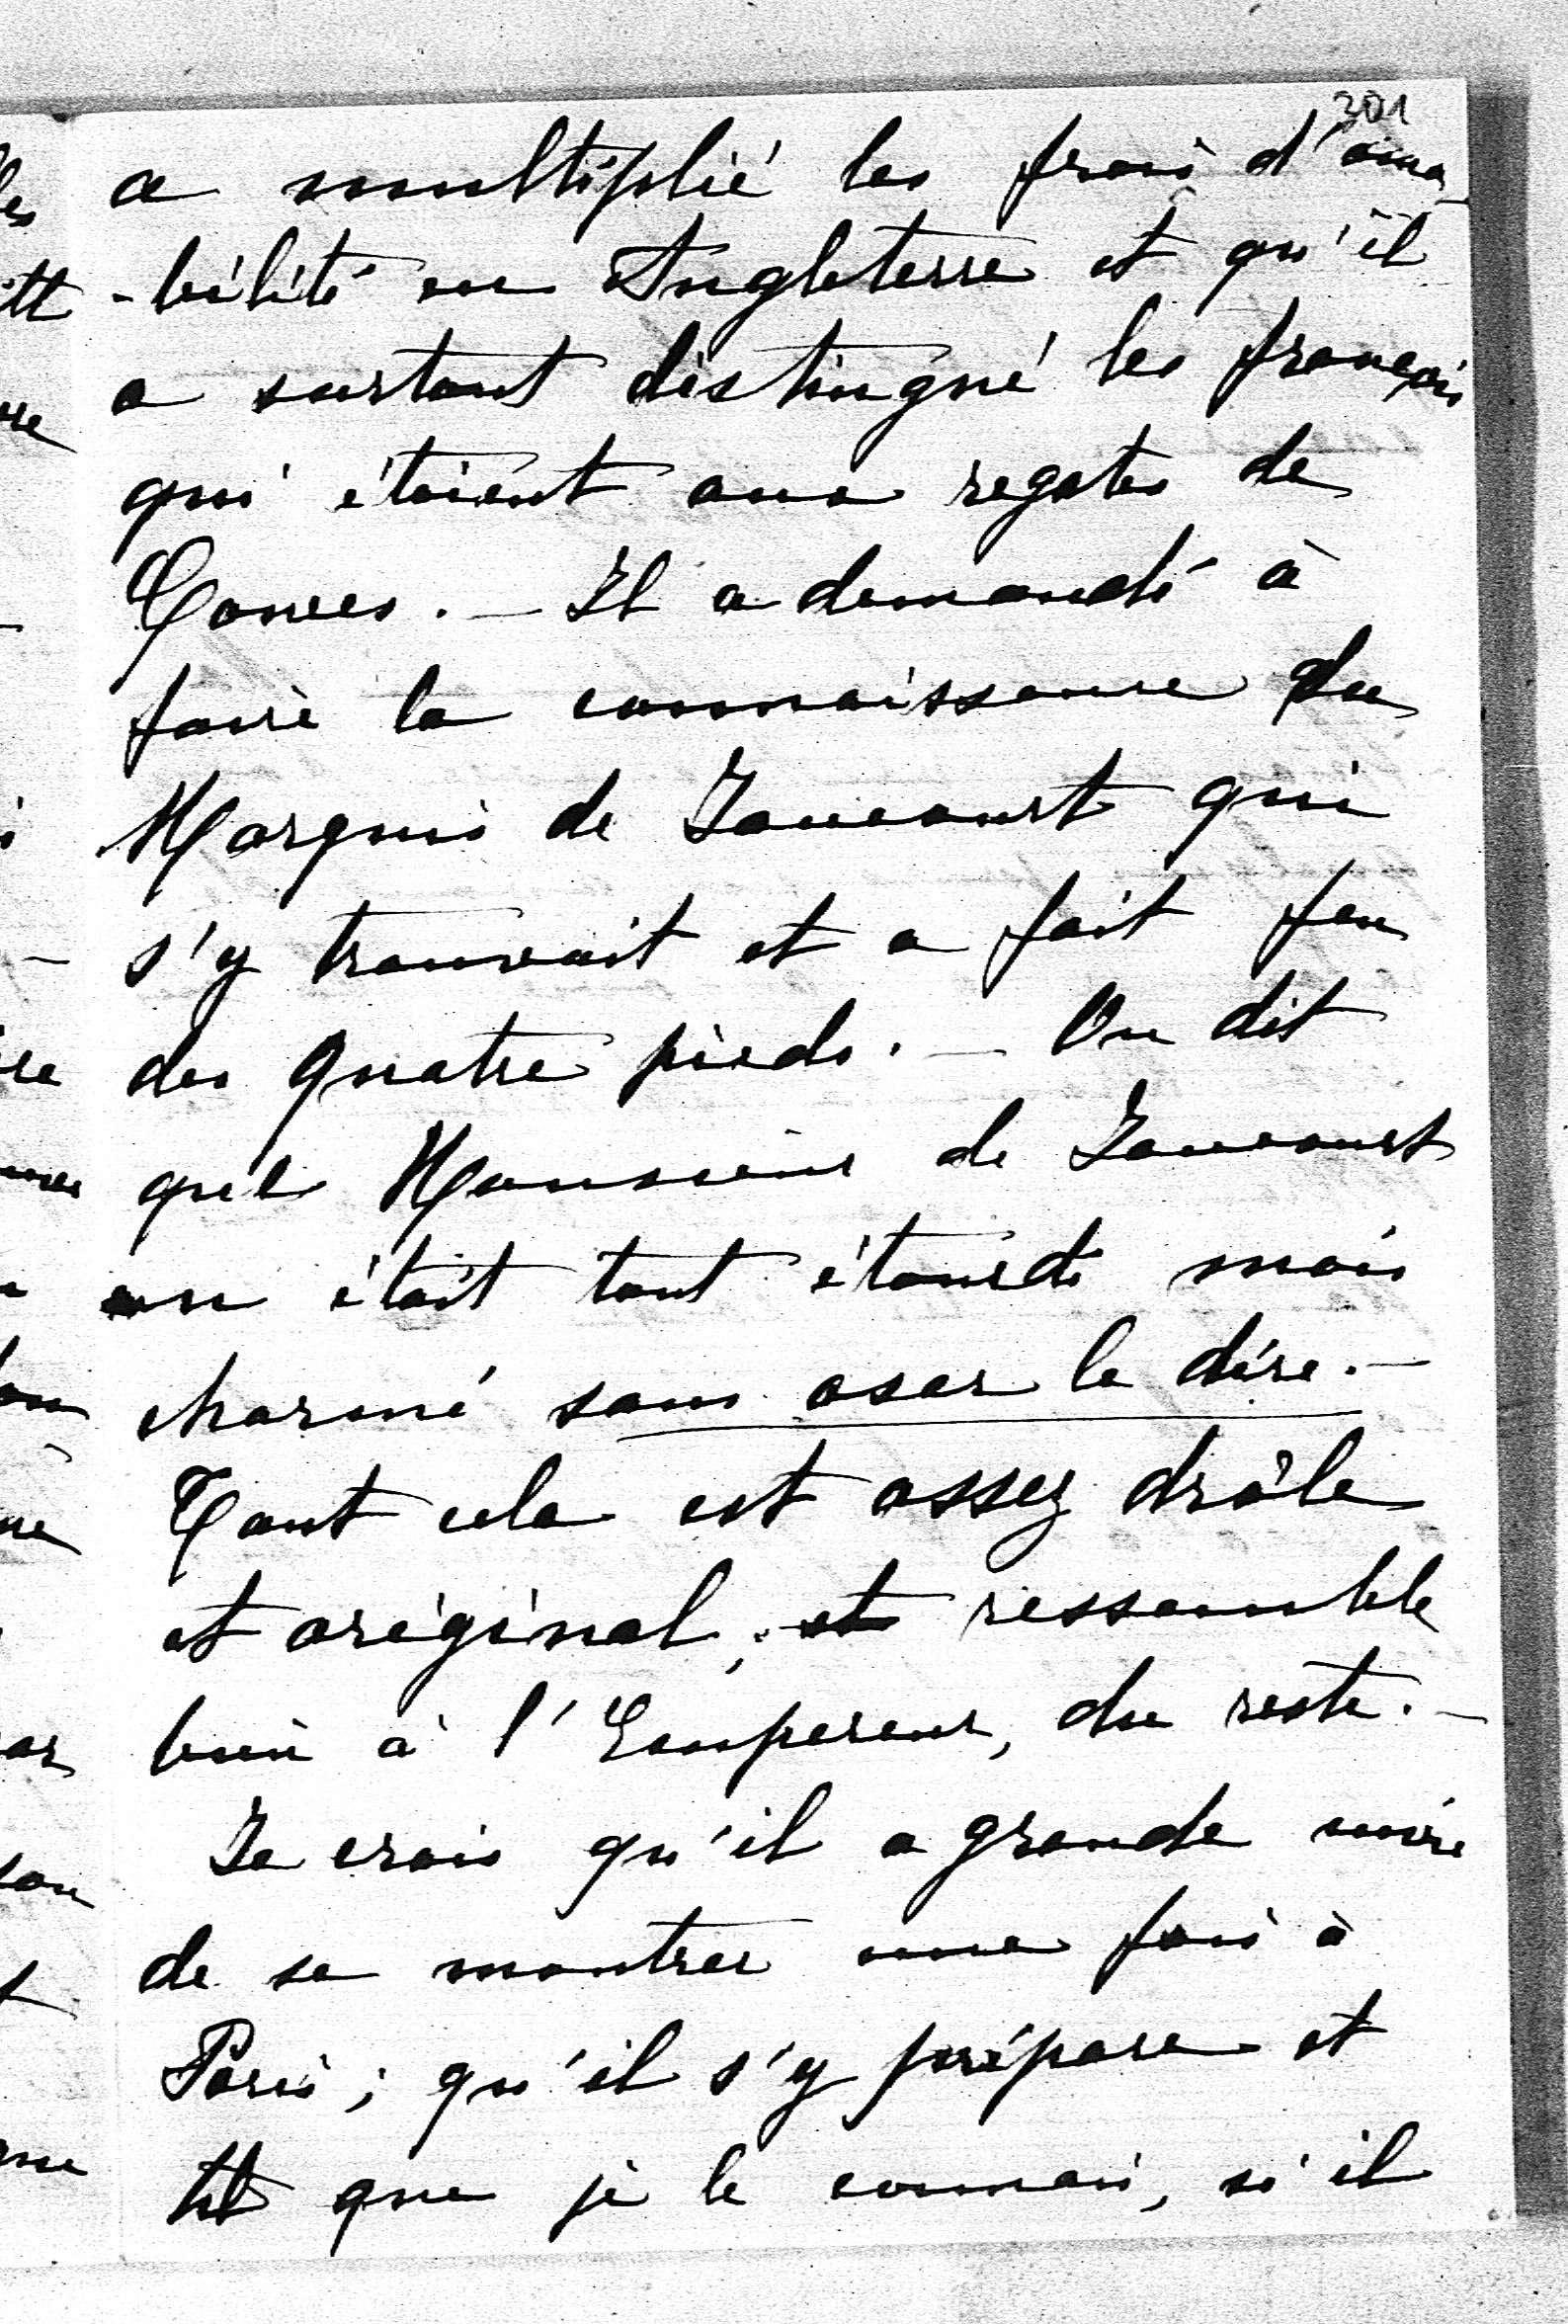 301
a multiplié les frais d'ama
-bilité en Angleterre et qu'il
a surtout distingué les français
qui étaient aux regates de
Cowes. - Il a demandé à
faire la connaissance du
Marquis de Jaucourt qui
s'y trouvait et a fait feu
des quatre pieds. - On dit
que Monsieur de Jaucourt
en était tout étourdi mais
charmé sans oser le dire. -
Tout cela est assez drôle
et original, et ressemble
bien à l'Empereur, du reste. -
Je crois qu'il a grande envie
de se montrer une fois à
Paris ; qu'il s'y prépare et
tel que je le connais, si il